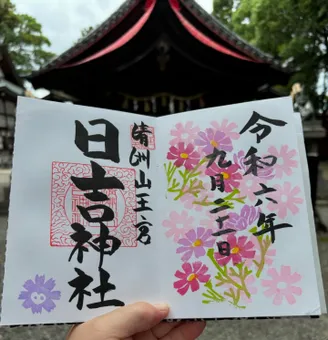 令和六年
九月二十一日
清洲山王宮
日吉神社